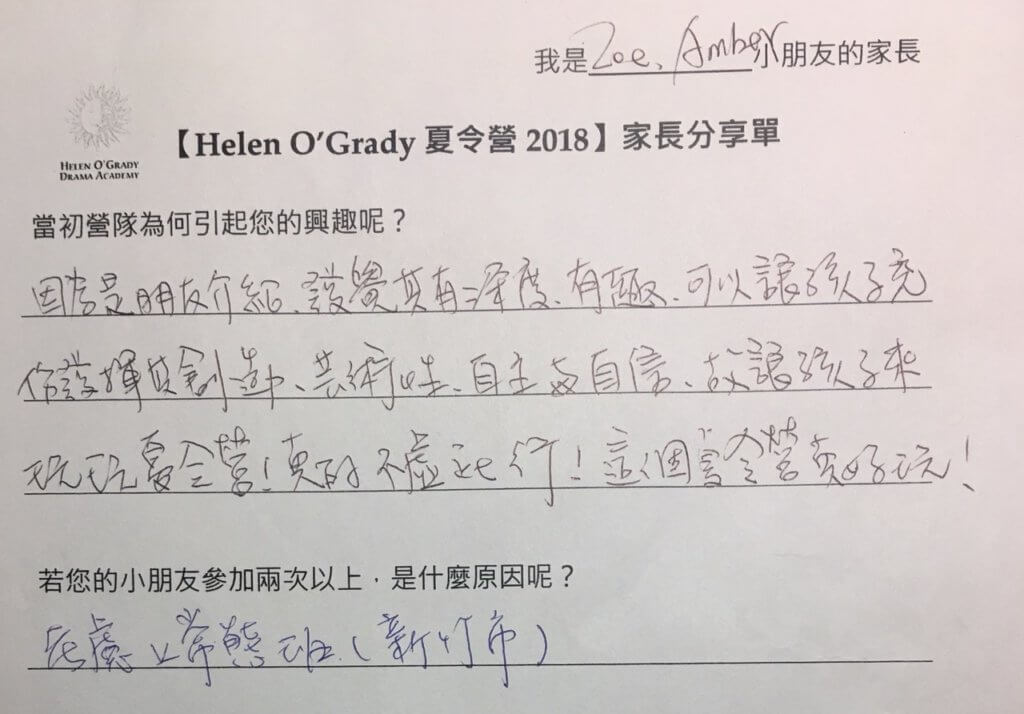 我是Zoe、Amber小朋友的家長
HELEN O'GRADY
DRAMA ACADEMY
【Helen O'Grady 夏令營 2018】家長分享單
當初營隊為何引起您的興趣呢？
因為是朋友介紹、發覺其有深度、有趣、可以讓孩子充
份發揮其創造、藝術性、自主與自信、故讓孩子來
玩玩夏令營！真的不虛此行！這個夏令營真好玩！
若您的小朋友參加兩次以上，是什麼原因呢？
考慮上常態班（新竹市）